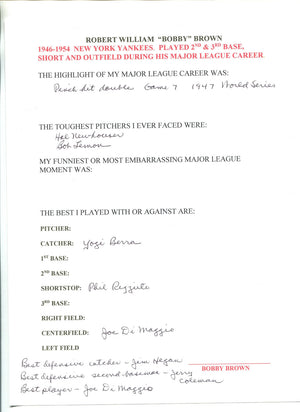 ROBERT WILLIAM "BOBBY" BROWN
1946-1954 NEW YORK YANKEES, PLAYED 2ND & 3RD BASE,
SHORT AND OUTFIELD DURING HIS MAJOR LEAGUE CAREER
THE HIGHLIGHT OF MY MAJOR LEAGUE CAREER WAS:
Pinch hit double Game 7 1947 World Series
THE TOUGHEST PITCHERS I EVER FACED WERE:
Hal Newhouser
Bob Lemon
MY FUNNIEST OR MOST EMBARRASSING MAJOR LEAGUE
MOMENT WAS:
THE BEST I PLAYED WITH OR AGAINST ARE:
PITCHER:
CATCHER: Yogi Berra
1ST BASE:
2ND BASE:
SHORTSTOP: Phil Rizzuto
3RD BASE:
RIGHT FIELD:
CENTERFIELD: Joe Di Maggio
LEFT FIELD
Best defensive catcher - Jim Hegan
BOBBY BROWN
Best defensive second baseman - Jerry
Coleman
Best player - Joe Di Maggio